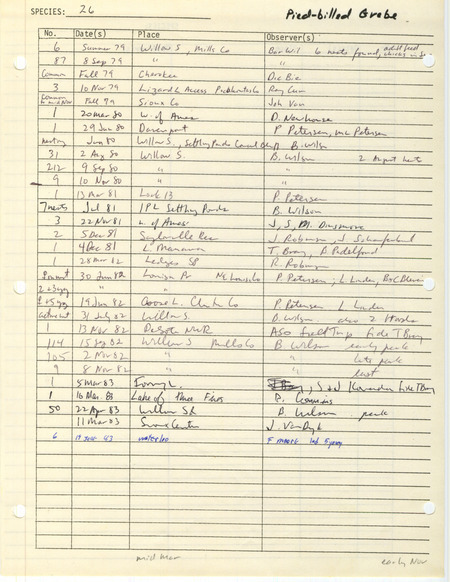 SPECIES: 26 Pied-billed Grebe
No. Date(s) Place Observer(s)
6 Summer 79 Willow S, Mills Co 6 nests found, adult feed
87 8 Sep 79 "
Common Fall 79 Cherokee Dic Bie
3 10 Nov 79 Lizard L Access Pocahontas Co Ray Cum
Common Fall 79 Sioux Co Joh Van
1 20 Mar 80 W. of Ames D. Newhouse
1 29 Jan 80 Davenport P Petersen, Mc Petersen
nesting Jun 80 Willow S., Settling Ponds B. Wilson
31 2 Aug 80 Willow S. B. Wilson 2 August nests
212 9 Sep 80 " "
9 10 Nov 80 " "
1 13 Mar 81 Lock 13 P. Petersen
7 nests Jul 81 IPL Settling Ponds B. Wilson
3 22 Nov 81 L. of Ames J, S, M. Dinsmore
2 5 Dec 81 Saylorville Res J Robinson, J
1 4 Dec 81 L. Manawa T, Bray, B Padelford
1 28 Mar 82 Ledges SP R. Robinson
30 Jun 82 Louisa P. Petersen, L. Linden,
2+3 yg " "
2+5 yg 19 Jun 82 Goose L. Clinton Co P Petersen L Linden
31 July 82 Willow S. B. Wilson also 2
1 13 Nov 82 DeSoto NWR ASO field Trip fide T Bray
114 15 Sep 82 Willow S Mills Co B Wilson early peak
105 2 Nov 82 " " late peak
9 8 Nov 82 " last
1 5 Mar 83 , S + J fide T Bray
1 16 Mar 83 Lake of Three Fires R. Cummins
50 22 Apr 83 Willow SL B. Wilson peak
11 Mar 83 Sioux Center J. VanDyk
6 43 waterloo
mid Mar early Nov